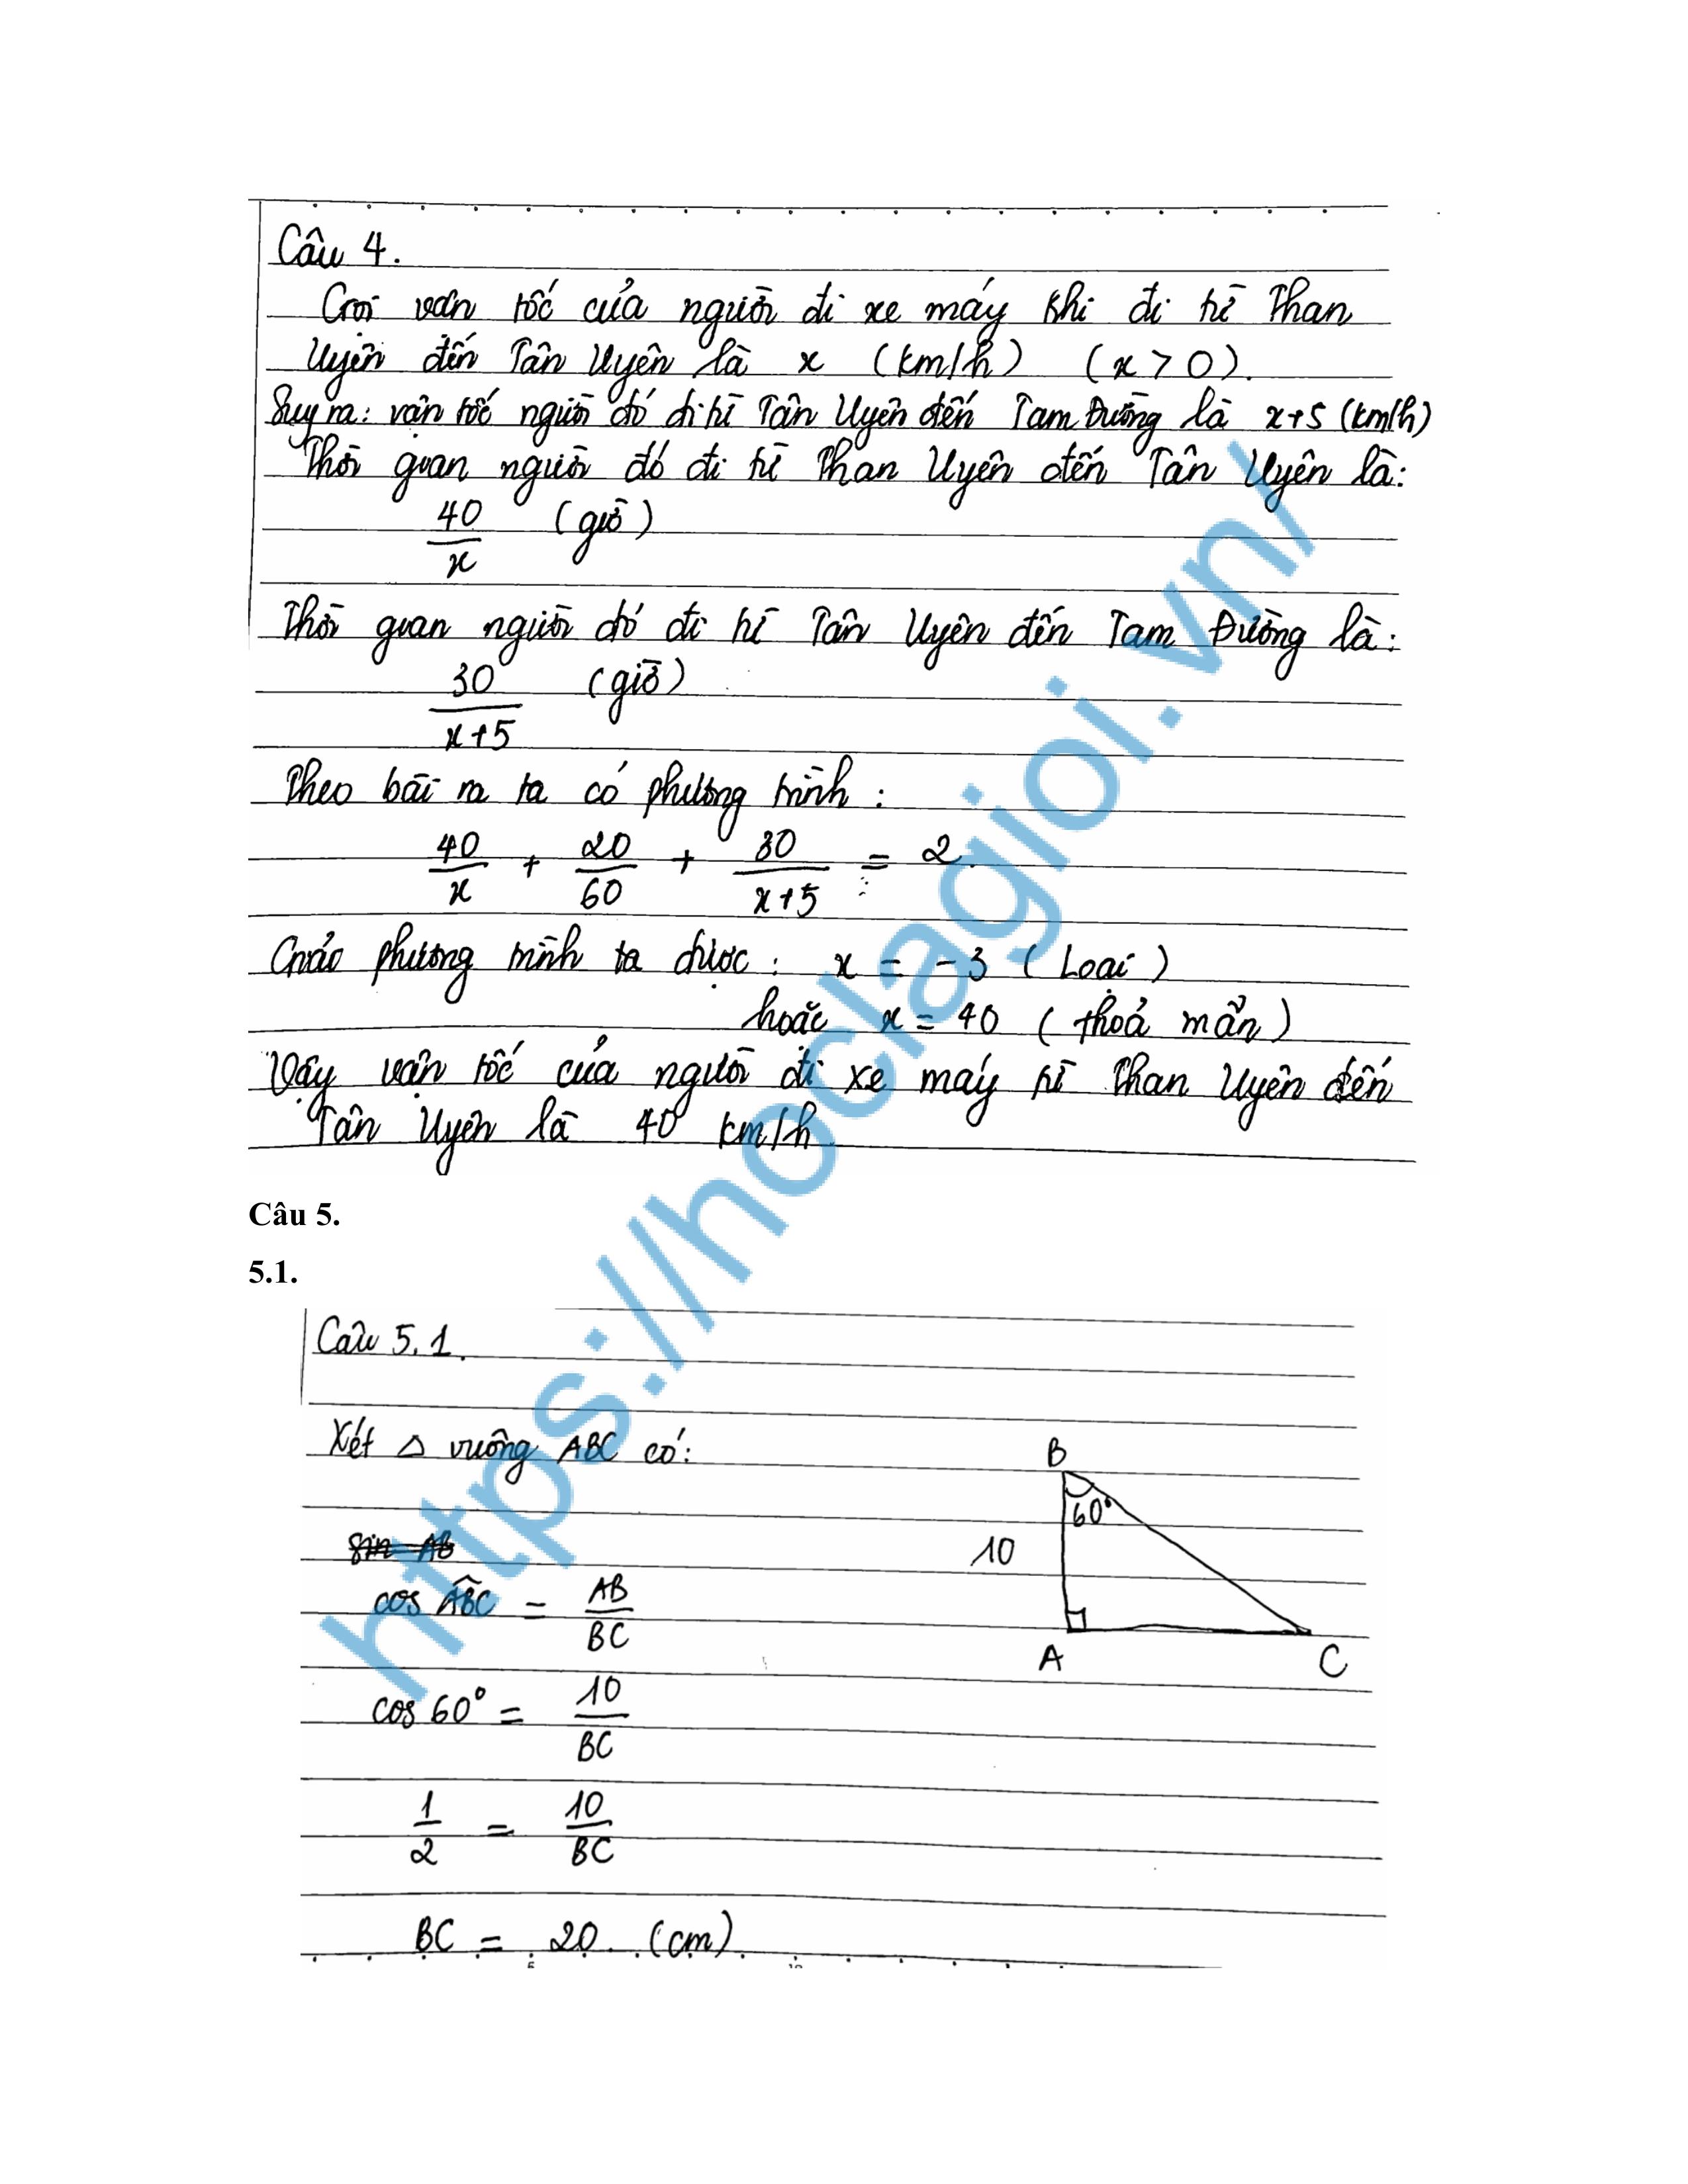 Câu 4.
Gọi vận tốc của người đi xe máy khi đi từ Than
Uyên đến Tân Uyên là x (km/h) (x > 0).
Suy ra: vận tốc người đó đi từ Tân Uyên đến Tam Đường là x+5 (km/h)
Thời gian người đó đi từ Than Uyên đến Tân Uyên là:
40/x (giờ)
Thời gian người đó đi từ Tân Uyên đến Tam Đường là:
30/(x+5) (giờ)
Theo bài ra ta có phương trình:
40/x + 20/60 + 30/(x+5) = 2
Giải phương trình ta được: x = -3 (Loại)
hoặc x = 40 (thoả mãn)
Vậy vận tốc của người đi xe máy từ Than Uyên đến
Tân Uyên là 40 km/h
Câu 5.
5.1.
Câu 5.1.
Xét △ vuông ABC có:
B
60°
sin AB
10
cos ABC = AB/BC
A
C
cos 60° = 10/BC
1/2 = 10/BC
BC = 20 (cm)
https://hoclagioi.vn/